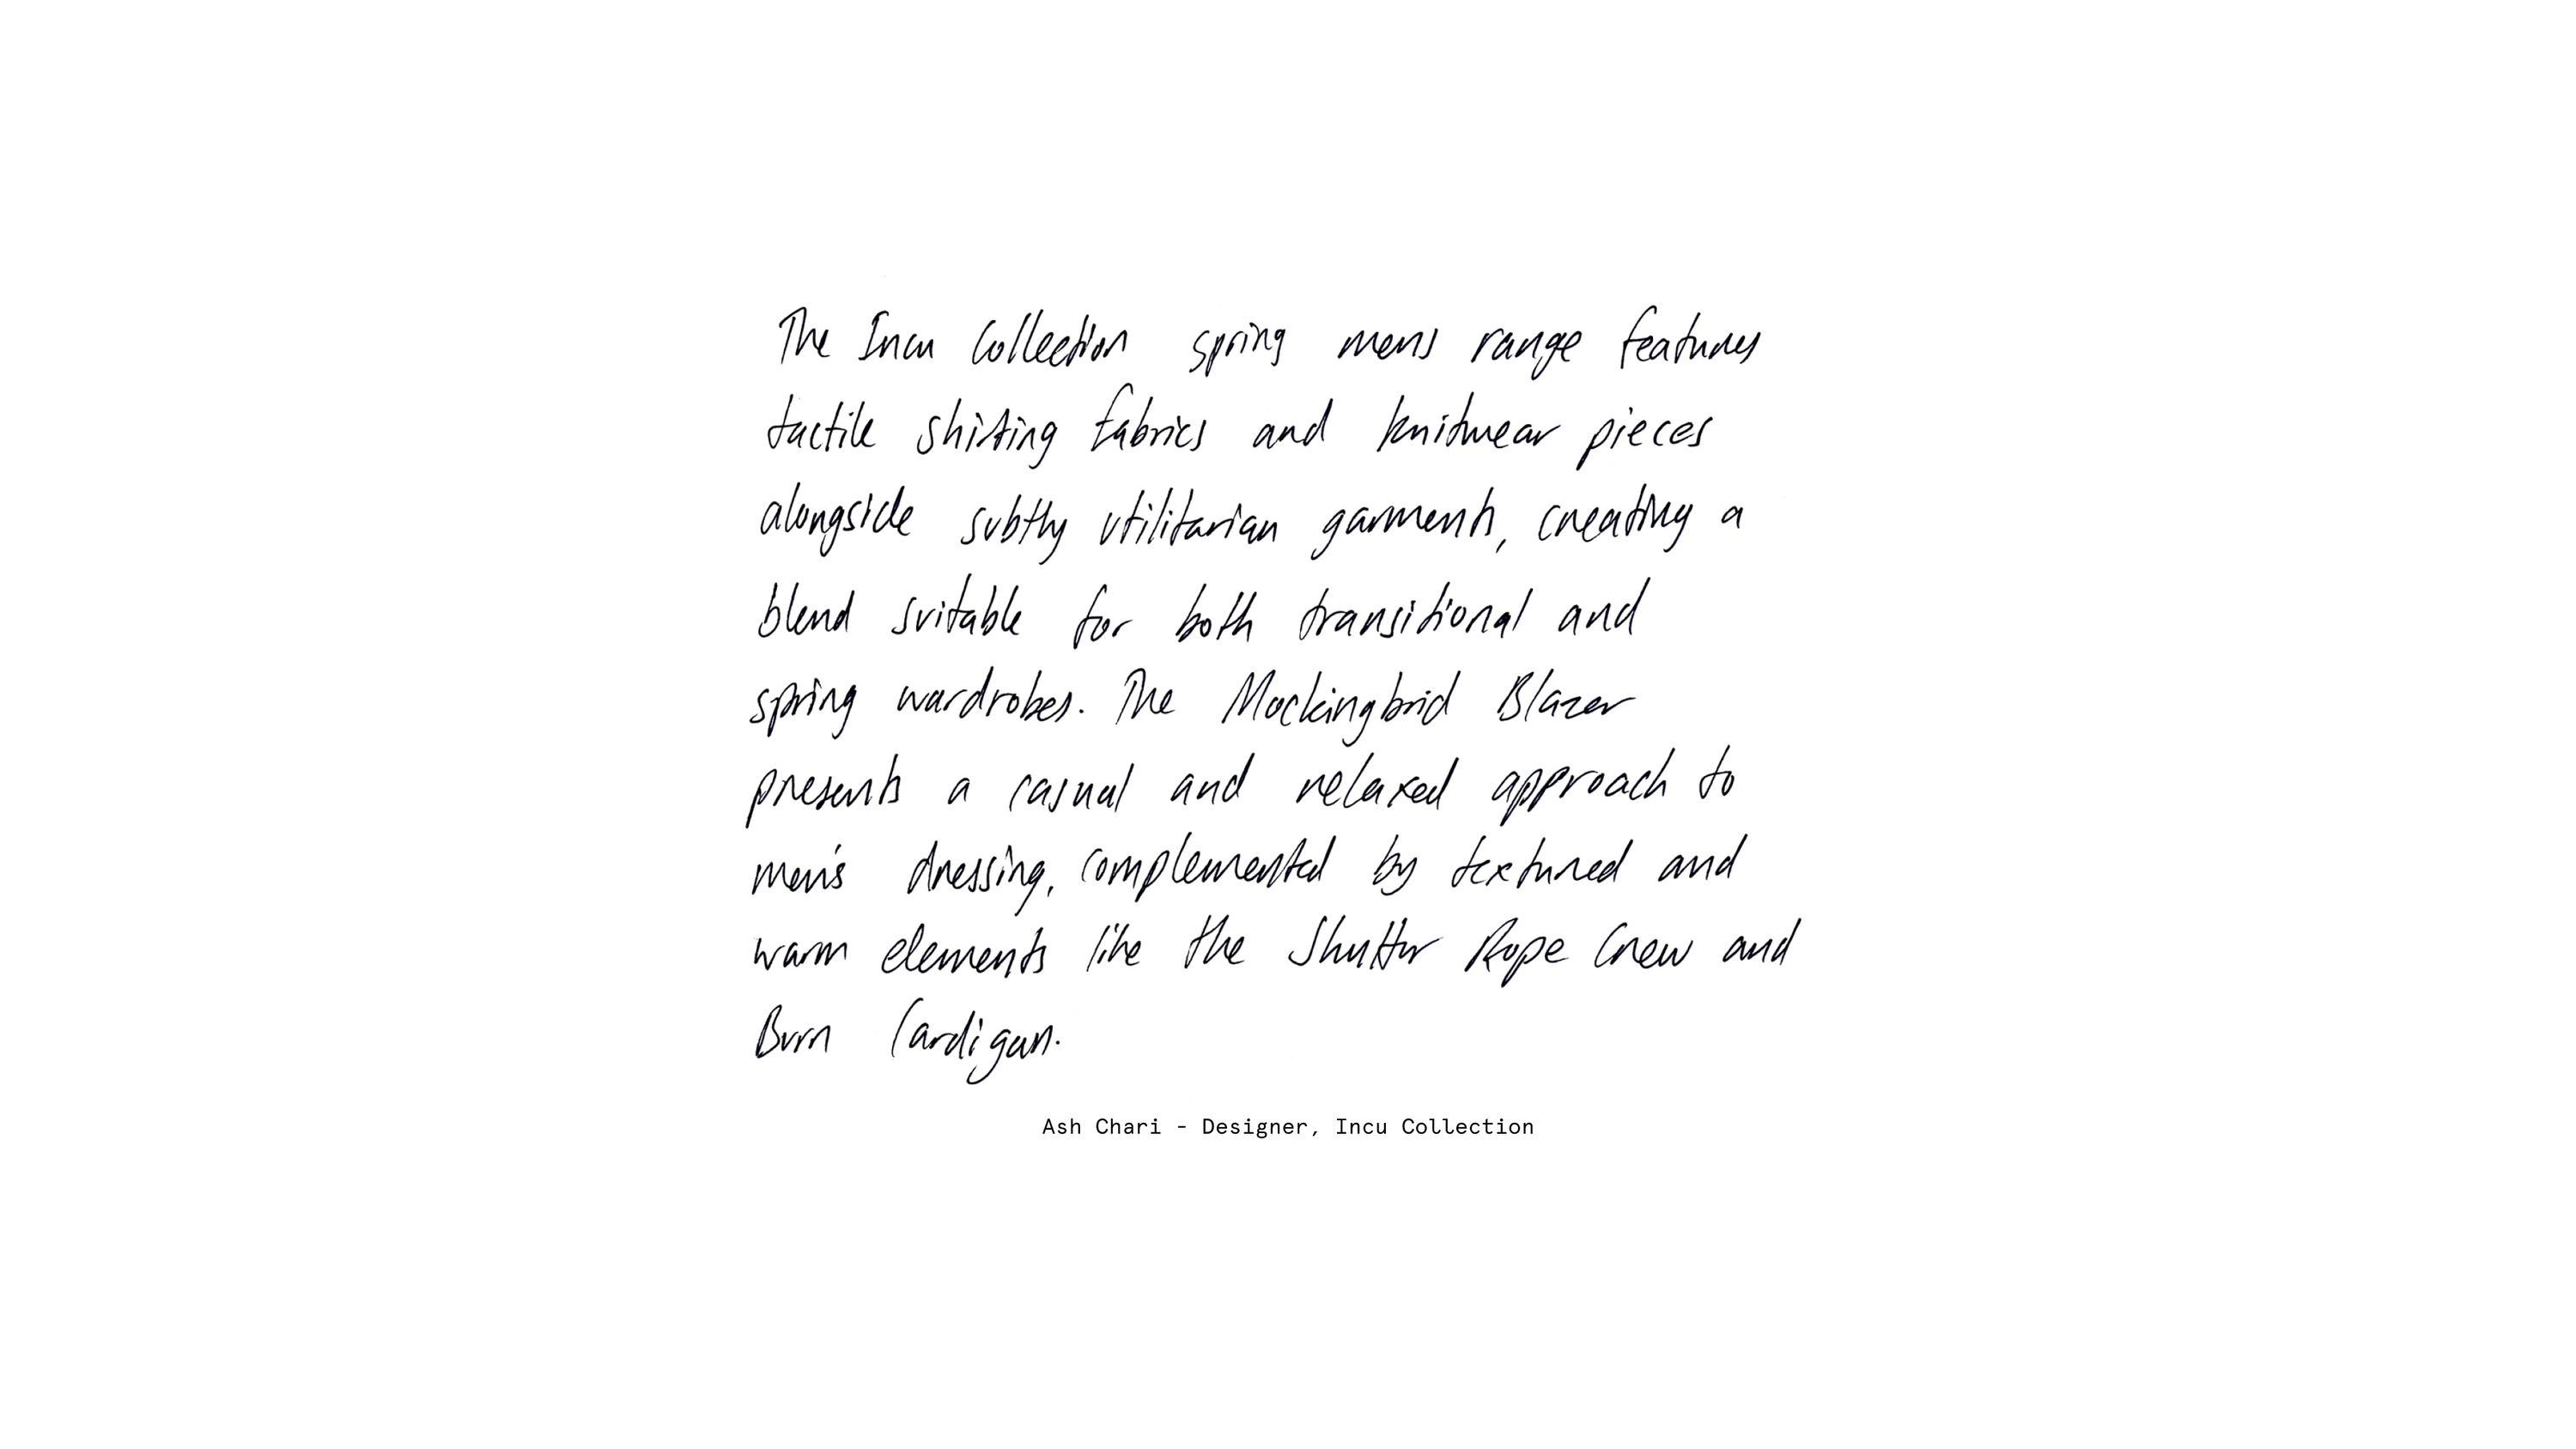 The Incu Collection spring mens range features
tactile shirting fabrics and knitwear pieces
alongside subtly utilitarian garments, creating a
blend suitable for both transitional and
spring wardrobes. The Mockingbrid Blazer
presents a casual and relaxed approach to
men's dressing, complemented by textured and
warm elements like the Shutter Rope Crew and
Burn Cardigan.
Ash Chari - Designer, Incu Collection